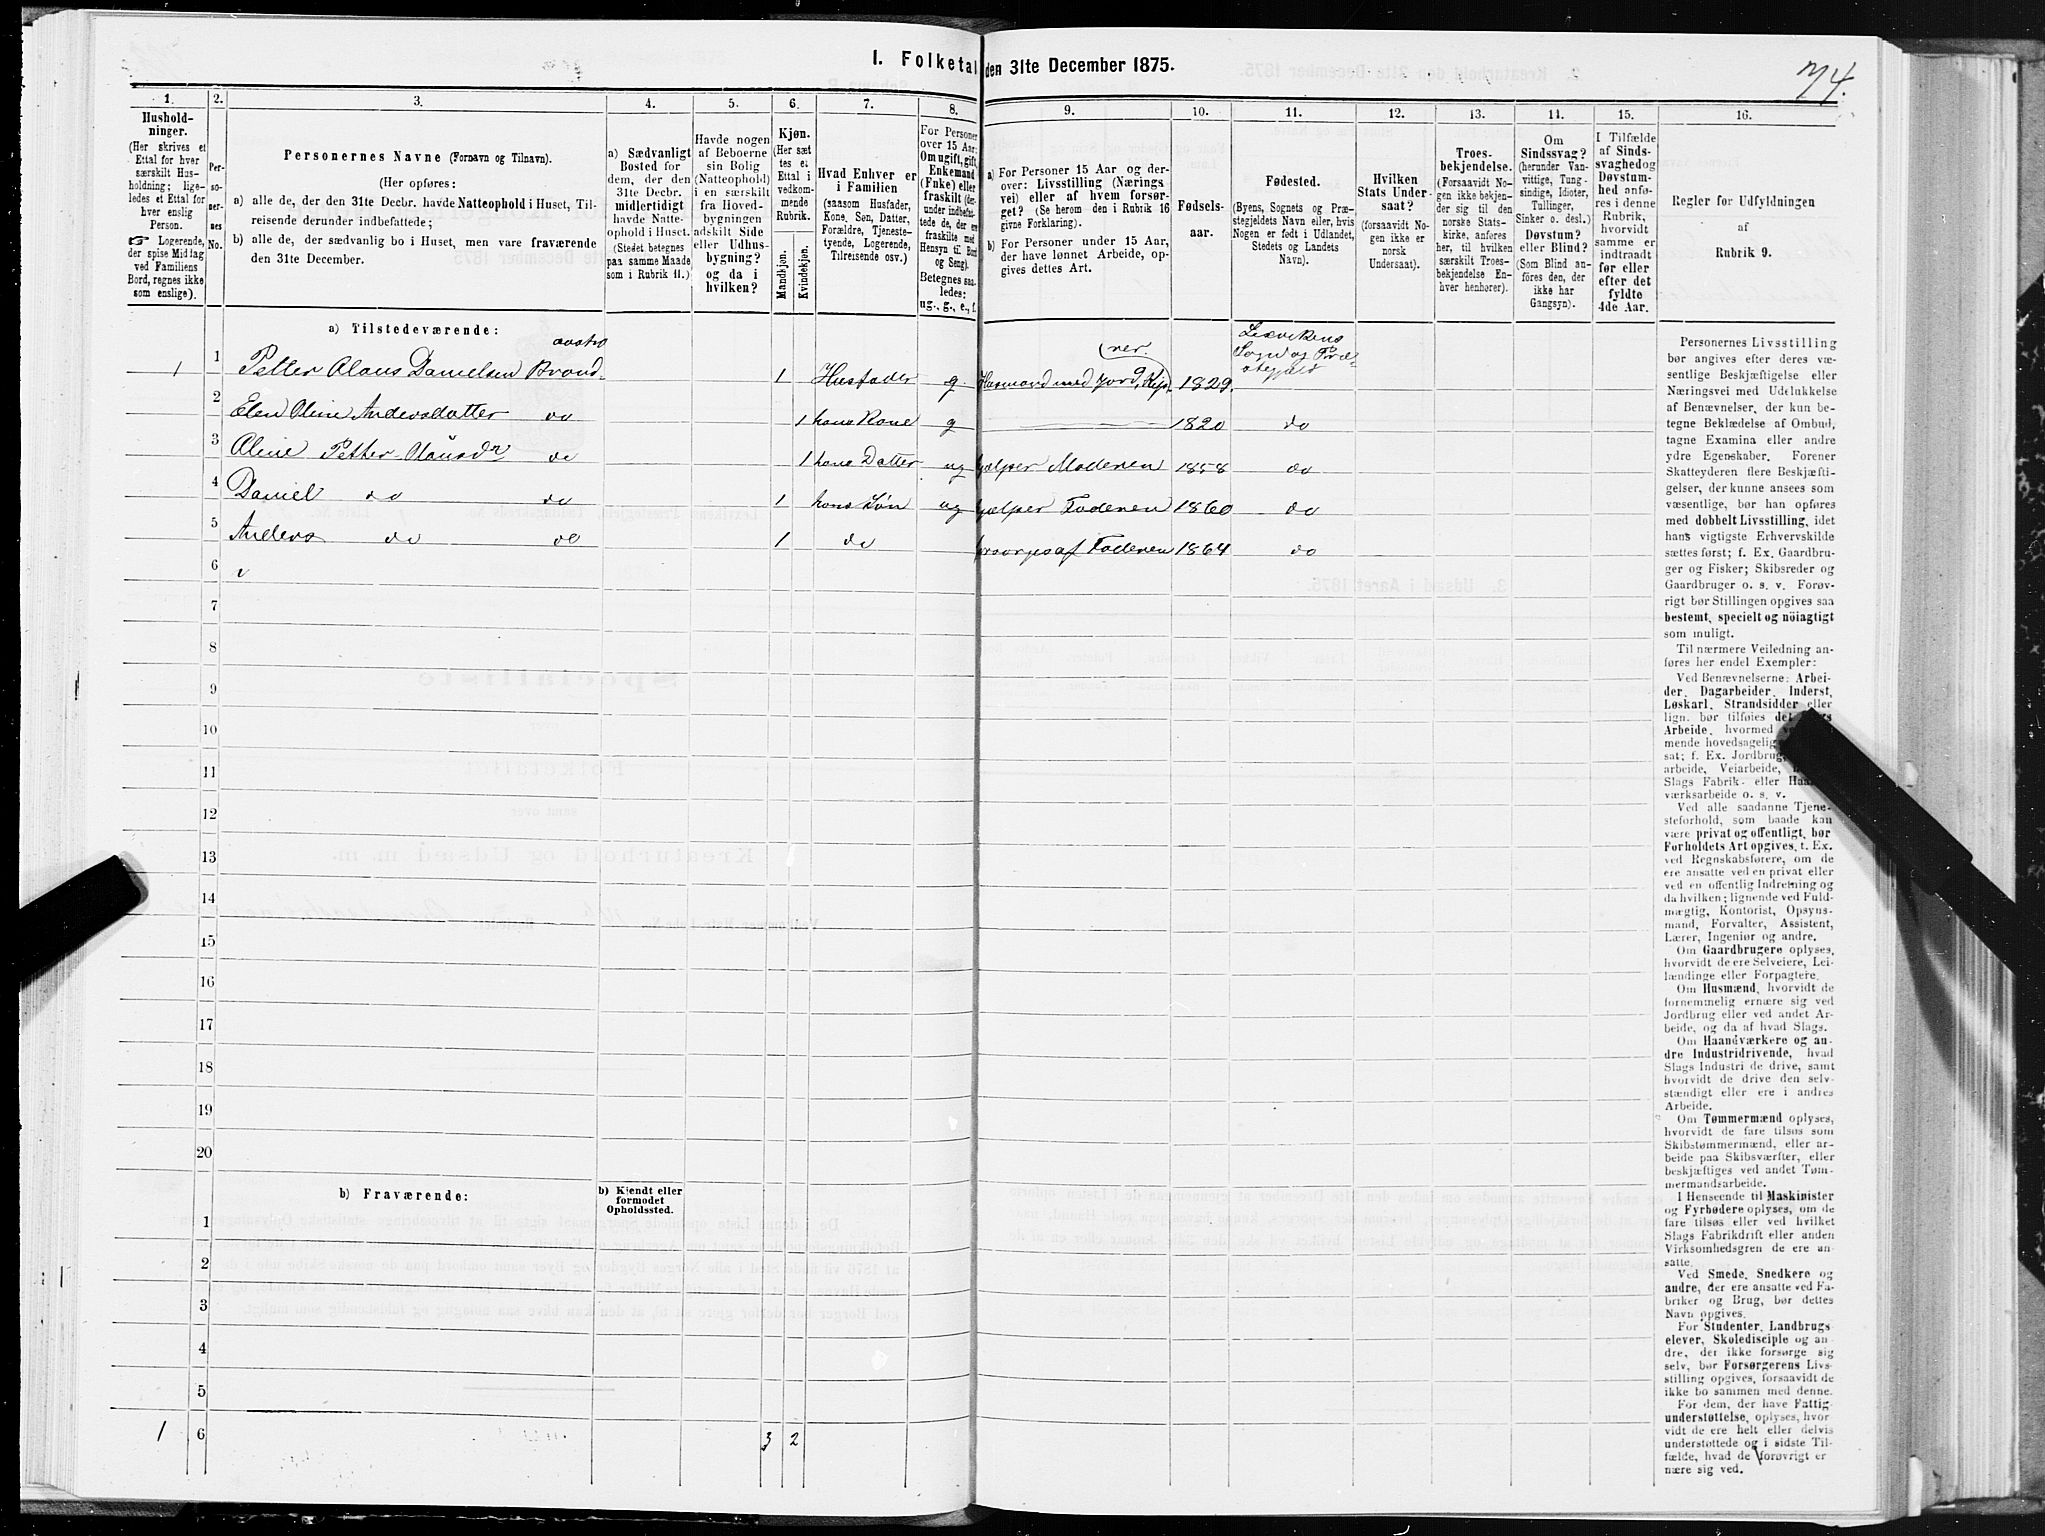 I. Folketal den 31te December 1875.
1. 2. 3. 4. 5. 6. 7. 8. 9. 10. 11. 12. 13. 14. 15. 16.
Hushold-
ninger.
(Her skrives et
Ettal for hver
særskilt Hus-
holdning; lige-
ledes et Ettal for
hver enslig
Person.
☞ Logerende,
der spise Middag
ved Familiens
Bord, regnes ikke
som enslige).
Per-
so-
ner-
nes
No.
Personernes Navne (Fornavn og Tilnavn).
(Her opføres:
a) alle de, der den 31te Decbr. havde Natteophold i Huset, Til-
reisende derunder indbefattede;
b) alle de, der sædvanlig bo i Huset, men vare fraværende
den 31te December.
a) Sædvanligt
Bosted for
dem, der den
31te Decbr.
midlertidigt
havde Natte-
ophold i Huset.
(Stedet betegnes
paa samme Maade
som i Rubrik 11.)
Havde nogen
af Beboerne
sin Bolig
(Natteophold)
i en særskilt
fra Hoved-
bygningen
adskilt Side
eller Udhus-
bygning?
og da i
hvilken?
Kjøn.
(Her sæt
tes et
Ettal i
vedkom-
mende
Rubrik.
Mandkjøn.
Kvindekjøn.
Hvad Enhver er
i Familien
(saasom Husfader,
Kone, Søn, Datter,
Forældre, Tjeneste-
tyende, Logerende,
Tilreisende osv.)
For Personer
over 15 Aar:
Om ugift, gift,
Enkemand
(Enke) eller
fraskilt (der-
under indbefat-
tede de, der ere
fraskilte med
Hensyn til Bord
og Seng).
Betegnes saa-
ledes:
ug., g., e., f.
a) For Personer 15 Aar og der-
over: Livsstilling (Nærings
vei) eller af hvem forsør-
get? (Se herom den i Rubrik 16
givne Forklaring).
b) For Personer under 15 Aar,
der have lønnet Arbeide, op-
gives dettes Art.
Fødsels-
aar.
Fødested.
(Byens, Sognets og Præ-
stegjeldets Navn eller, hvis
Nogen er født i Udlandet,
Stedets og Landets
Navn).
Hvilken
Stats Under-
saat?
(forsaavidt No-
gen ikke er
norsk
Undersaat).
Troes-
bekjendelse.
(Forsaavidt No-
gen ikke bekjen-
der sig til den
norske Stats-
kirke, anføres
her, til hvilken
særskilt Troes-
bekjendelse En-
hver henhører).
Om
Sindssvag?
(herunder Van-
vittige, Tung-
sindige, Idioter,
Tullinger,
Sinker o. desl.)
Døvstum?
eller Blind?
(Som Blind an-
føres den, der
ikke har
Gangsyn).
I Tilfælde
af Sinds-
svaghed og
Døvstum-
hed anfø-
res i denne
Rubrik,
hvorvidt
samme er
indtraadt
før eller
efter det
fyldte
4de Aar.
Regler for Udfyldningen
af
Rubrik 9.
a) Tilstedeværende:
1 1 Petter Olaus Danielsen Brand- 1 Husfader g. Husmand med Jord, 1829. Sogn og Præ-
2 Elen Oline Andersdatter do 1 hans Kone g 1820 do
3 Oline Petter-Olausdr do 1 hans Datter ug hjælper Moderen 1858 do
4 Daniel do do 1 hans Søn ug hjælper Faderen 1860 do
5 Anders do do 1 do forsørges af Faderen 1864 do
6
7
8
9
10
11
12
13
14
15
16
17
18
19
20
b) Fraværende:
b) Kjendt eller
formodet
Opholdssted.
1
2
3
4
5
1 6 3 2
Personernes Livsstilling
bør angives efter deres væ-
sentlige Beskjæftigelse eller
Næringsvei med Udelukkelse
af Benævnelser, der kun be-
tegne Beklædelse af Ombud,
tagne Examina eller andre
ydre Egenskaber. Forener
Skatteyderen flere Beskjæfti-
gelser, der kunne ansees som
væsentlige, bør han opføres
med dobbelt Livsstilling, idet
hans vigtigste Erhvervskilde
sættes først; f. Ex. Gaardbru-
ger og Fisker; Skibsreder og
Gaardbruger o. s. v. Forøv-
rigt bør Stillingen opgives saa
bestemt, specielt og nöiagtigt
som muligt.
Til nærmere Veiledning an-
føres her endel Exempler:
Ved Benævnelserne: Arbei-
der, Dagarbeider, Inderst,
Løskarl, Strandsidder eller
lign. bør tilføies
Arbeide, hvormed
mende hovedsagelig
sat; f. Ex. Jordbrug,
arbeide, Veiarbeide,
Slags Fabrik- eller
værksarbeide o. s. v.
Ved alle saadanne Tjene-
steforhold, som baade kan
være privat og offentligt, bør
Forholdets Art opgives, f. Ex.
ved Regnskabsførere, om de
ere ansatte ved en privat eller
ved en offentlig Indretning og
da hvilken; lignende ved Fuld-
mægtig, Kontorist, Opsyns-
mand, Forvalter, Assistent,
Lærer, Ingeniør og andre.
Om Gaardbrugere oplyses,
hvorvidt de ere Selveiere, Lei-
lændinge eller Forpagtere.
Om Husmænd, hvorvidt de
fornemmelig ernære sig ved
Jordbrug eller ved andet Ar-
beide, og da af hvad Slags.
Om Haandværkere og an-
dre Industridrivende, hvad
Slags Industri de drive, samt
hvorvidt de drive den selv-
stændigt eller ere i andres
Arbeide.
Om Tømmermænd oplyses,
hvorvidt de fare tilsøs som
Skibstømmermænd, eller ar-
beide paa Skibsværfter, eller
beskjæftiges ved andet Tøm-
mermandsarbeide.
I Henseende til Maskinister
og Fyrbødere oplyses, om de
fare tilsøs eller ved hvilket
Slags Fabrikdrift eller anden
Virksomhedsgren de ere an-
satte.
Ved Smede, Snedkere og
andre, der ere ansatte ved Fa-
briker og Brug, bør dettes
Navn opgives.
For Studenter, Landbrugs-
elever, Skoledisciple og an-
dre, der ikke forsørge sig
selv, bør Forsørgerens Livs-
stilling opgives, forsaavidt de
ikke bo sammen med denne.
For dem, der have Fattig-
understøttelse, oplyses, hvor-
vidt de ere helt eller delvis
understøttede og i sidste Til-
fælde, hvad de forøvrigt er
nære sig ved.